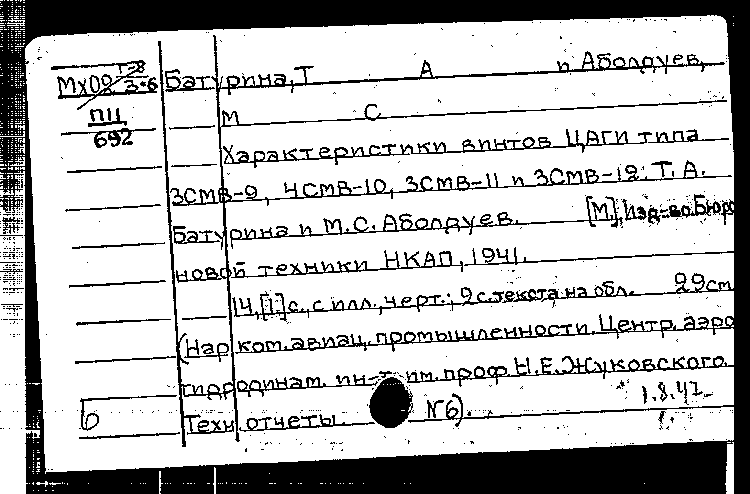 Т-8
Мх08 3-6 Батурина, Т А и Аболдуев,
ПЦ М С
692
Характеристики винтов ЦАГИ типа
3СМВ-9, 4СМВ-10, 3СМВ-11 и 3СМВ-12. Т. А.
Батурина и М.С. Аболдуев. [М.], Изд-во Бюро
новой техники НКАП, 1941.
14, [1] с., с илл., черт.; 2 с. текста на обл. 29см
(Нар.ком.авиац.промышленности. Центр. аэро
гидродинам. ин-т им. проф. Н.Е.Жуковского.
б Техн. отчеты. №6).
1.8.47